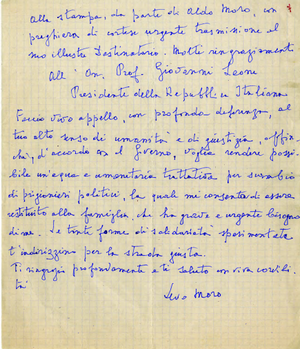 alla stampa, da parte di Aldo Moro, con
preghiera di cortese urgente trasmissione al
suo illustre Destinatario. Molti ringraziamenti
All' On. Prof. Giovanni Leone
Presidente della Repubblica Italiana
Faccio vivo appello, con profonda deferenza, al
tuo alto senso di umanità e di giustizia, affin-
ché, d'accordo con il Governo, voglia rendere possi-
bile un'equa e umanitaria trattativa per scambio
di prigionieri politici, la quale mi consenta di essere
restituito alla famiglia, che ha grave e urgente bisogno
di me. Le tante forme di solidarietà sperimentate
t'indirizzino per la strada giusta.
Ti ringrazio profondamente e ti saluto con viva cordiali-
tà
Aldo Moro